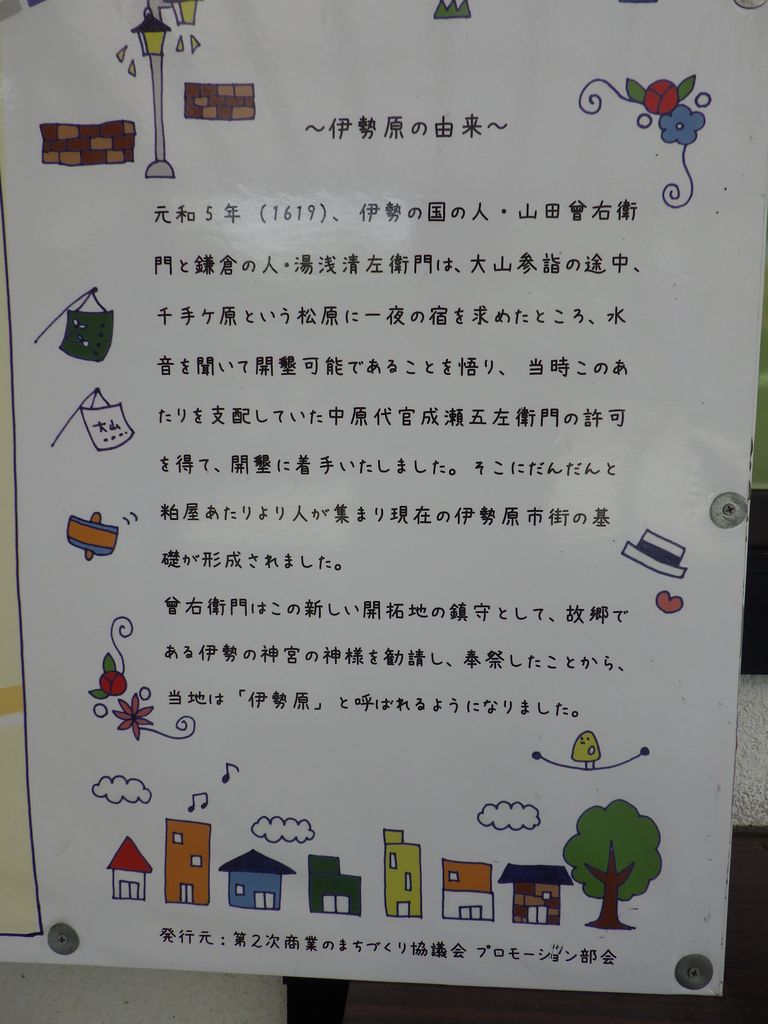 ～伊勢原の由来～
元和5年（1619）、伊勢の国の人・山田曾右衛
門と鎌倉の人・湯浅清左衛門は、大山参詣の途中、
千手ケ原という松原に一夜の宿を求めたところ、水
音を聞いて開墾可能であることを悟り、当時このあ
たりを支配していた中原代官成瀬五左衛門の許可
を得て、開墾に着手いたしました。そこにだんだんと
粕屋あたりより人が集まり現在の伊勢原市街の基
礎が形成されました。
曾右衛門はこの新しい開拓地の鎮守として、故郷で
ある伊勢の神宮の神様を勧請し、奉祭したことから、
当地は「伊勢原」と呼ばれるようになりました。
大山
発行元：第2次商業のまちづくり協議会 プロモーション部会